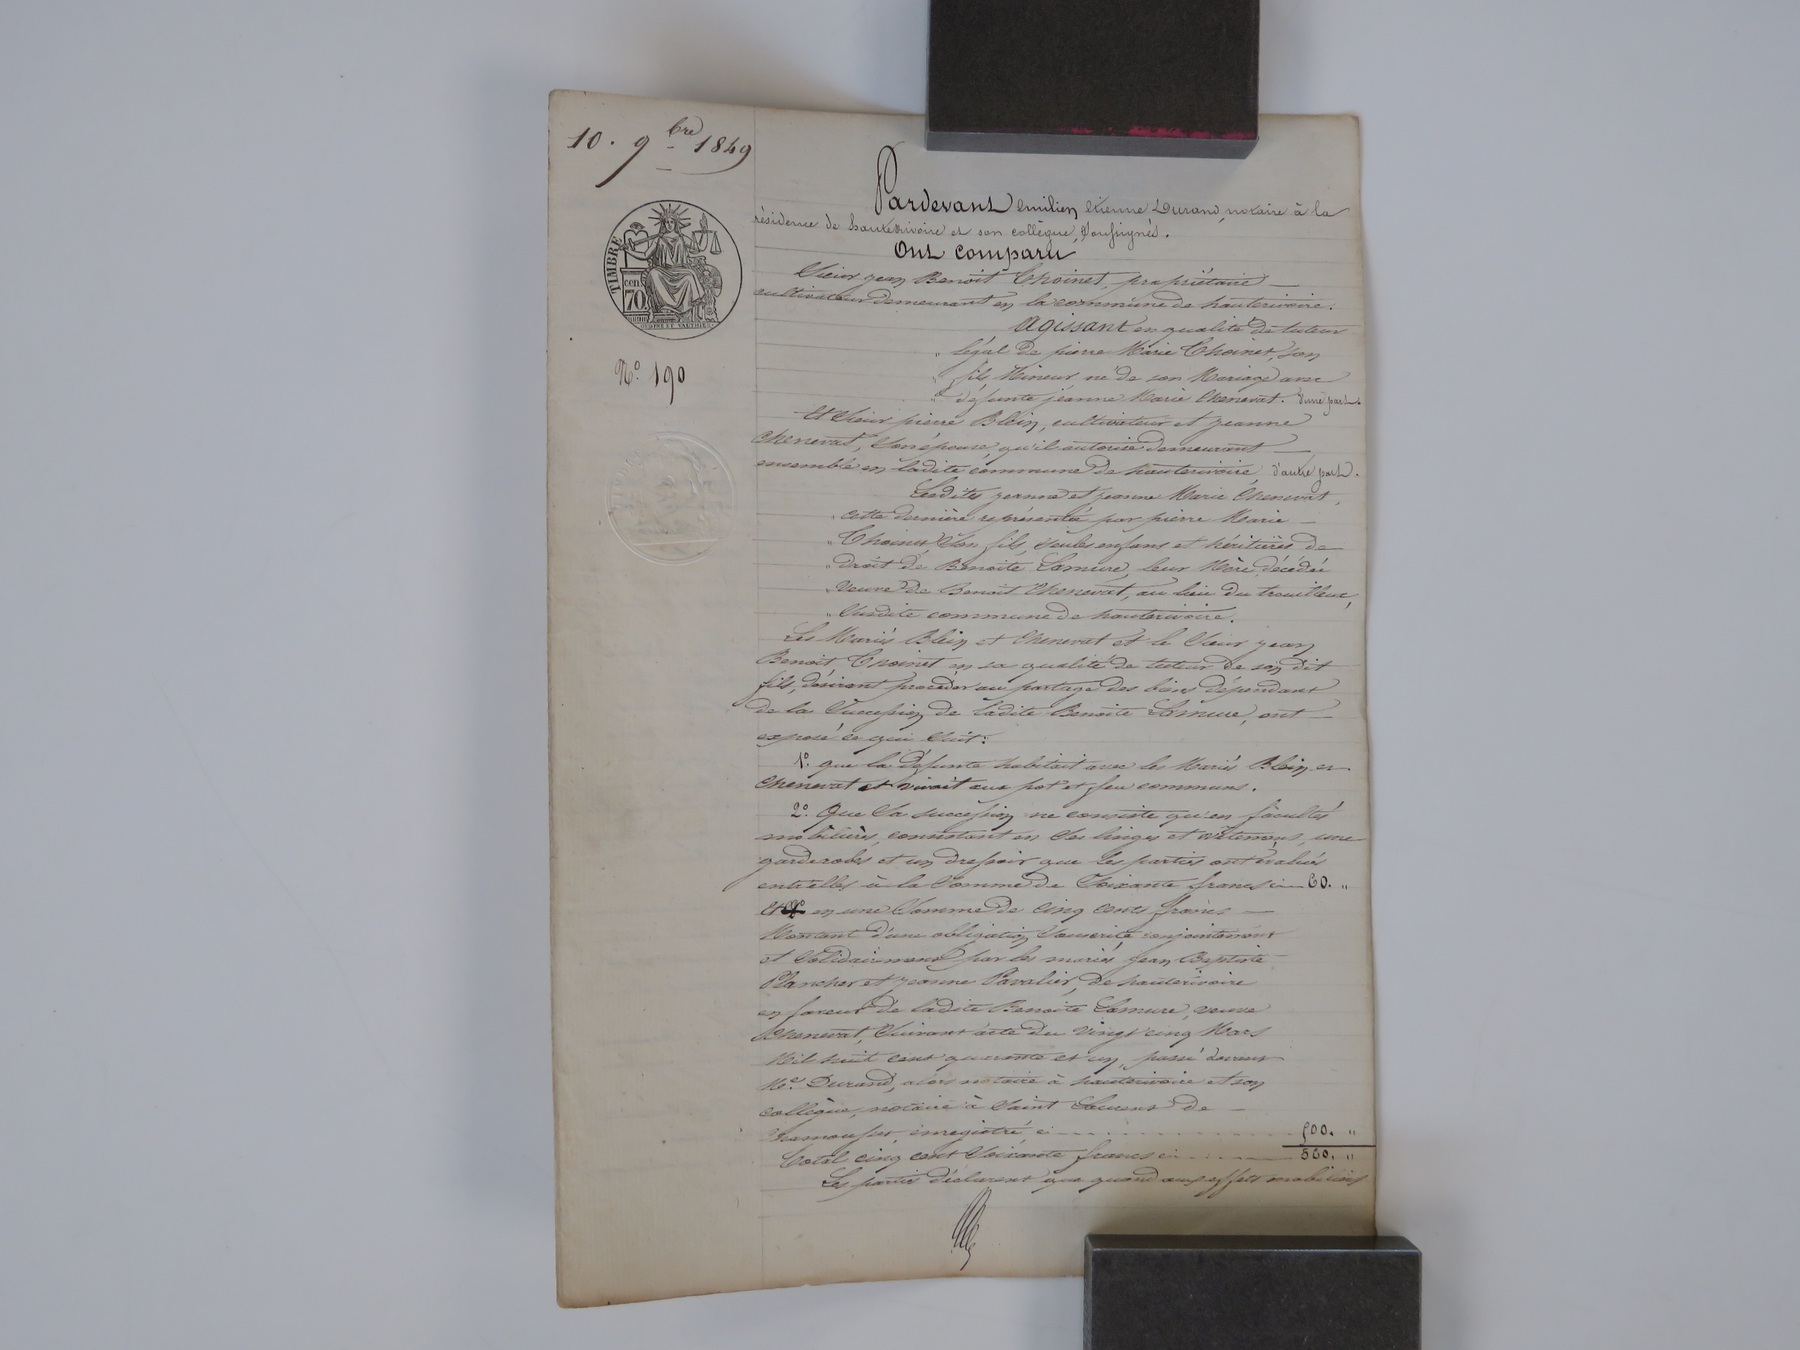 10. 9bre 1849
TIMBRE
cen.
70
N.º 190
Pardevant Emilien Etienne Durand, notaire à la
résidence de hauterivoire et son collègue, soussignés.
Ont comparu
Sieur jean Benoit Choinet, propriétaire
cultivateur demeurant en la commune de hauterivoire.
Agissant en qualité de tuteur
légal de pierre Marie Choinet, son
fils Mineur né de son Mariage avec
défunte jeanne Marie Chenevat. d'une part.
Et Sieur pierre Blein, cultivateur et jeanne
Chenevat, son épouse, qu'il autorise demeurant
ensemble en ladite commune de hauterivoire, d'autre part.
Lesdites jeanne et jeanne Marie Chenevat,
cette dernière représentée par pierre Marie
Choinet son fils, seules enfans et héritières de
droit de Benoite Lomure, leur Mère, décédée
veuve de Benoit Chenevat, au lieu du
susdite commune de hauterivoire.
Les Mariés Blein et Chenevat et le Sieur jean
Benoit Choinet en sa qualité de tuteur de son dit
fils, désirant procéder au partage des biens dépendant
de la Succession de ladite Benoite Lomure, ont
exposé ce qui suit:
1º. que la défunte habitait avec les Mariés Blein et
Chenevat et vivait aux pot et feu communs.
2º. Que sa succession ne consiste qu'en facultés
mobilières, consistant en ses linges et vêtemens, une
garderobe et un dressoir que les parties ont évalués
entr'elles à la somme de Soixante francs ci 60. "
Et en une Somme de cinq cents francs
Montant d'une obligation souscrite conjointement
et solidairement par les mariés Jean Baptiste
Plancher et jeanne de hauterivoire
en faveur de ladite Benoite Lomure, veuve
Chenevat, suivant acte du vingt cinq Mars
Mil huit cent quarante et un, passé devant
Me. Durand, alors notaire à hauterivoire et son
collègue, notaire à Saint Laurent de
Chamousset, enregistré ci 500. "
Total cinq cent soixante francs ci 560. "
Les parties déclarent que quand aux effets mobiliers